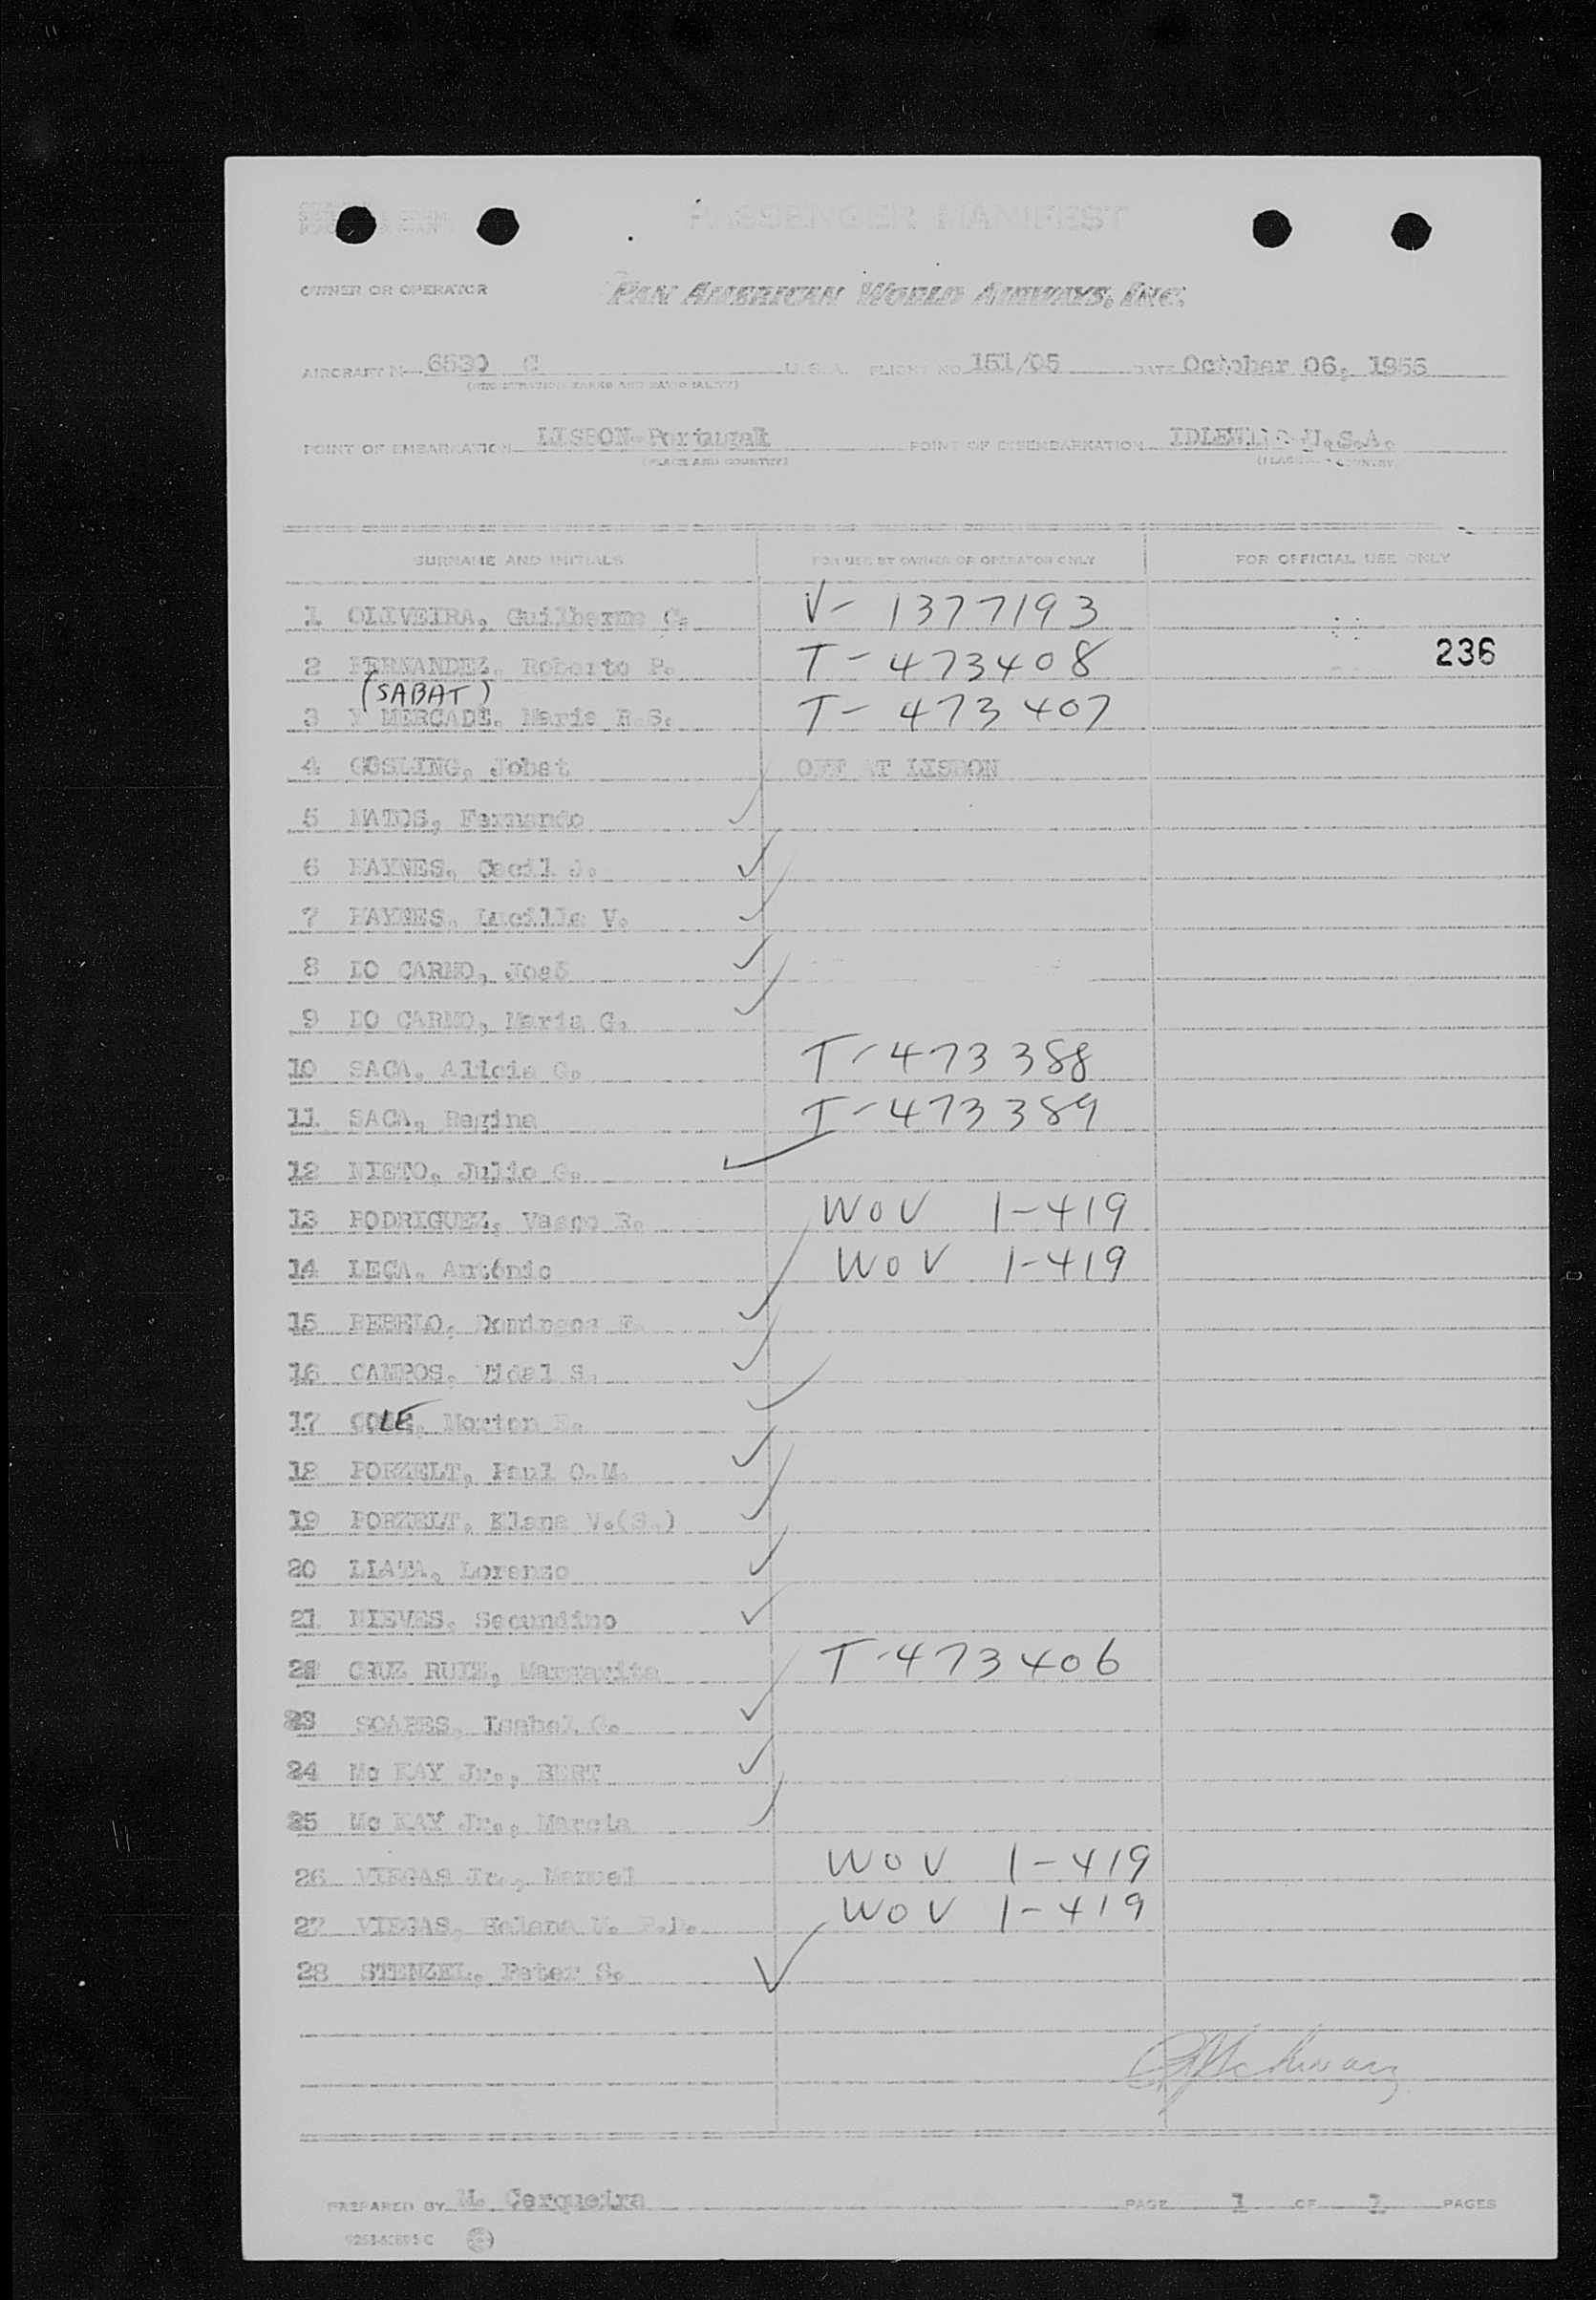 PASSENGER MANIFEST
OWNER OR OPERATOR PAN AMERICAN WORLD AIRWAYS, INC.
AIRCRAFT N 6530 C U.S.A. FLIGHT NO 151/05 DATE October 06, 1955
(REGISTRATION MARKS AND NATIONALITY)
POINT OF EMBARKATION LISBON-Portugal POINT OF DISEMBARKATION IDLEWILD-U.S.A.
(PLACE AND COUNTRY) (PLACE AND COUNTRY)
SURNAME AND INITIALS FOR USE BY OWNER OR OPERATOR ONLY FOR OFFICIAL USE ONLY
1 OLIVEIRA, Guilherme C. V- 1377193
2 FERNANDEZ, Roberto P. T-473408 236
(SABAT)
3 Y MERCADE, Maria R.S. T-473407
4 GOSLING, Jobst OFF AT LISBON
5 MATOS, Fernando
6 HAYNES, Cecil J. ✓
7 HAYNES, Lucille V. ✓
8 DO CARMO, José ✓
9 DO CARMO, Maria G. ✓
10 SACA, Alicia G. T-473388
11 SACA, Regina T-473389
12 NIETO, Julio G. ✓
13 RODRIGUEZ, Vasco R. WOV 1-419
14 LECA, António WOV 1-419
15 REBELO, Domingos F. ✓
16 CAMPOS, Vidal S. ✓
17 COLE, Morton E. ✓
18 PORZELT, Paul O.M. ✓
19 PORZELT, Elena V.(S.) ✓
20 LIATA, Lorenzo ✓
21 NIEVES, Secundino ✓
22 CRUZ RUIZ, Margarita T-473406
23 SOARES, Isabel G. ✓
24 Mc KAY Jr., BERT ✓
25 Mc KAY Jr., Marcia
26 VIEGAS Jr., Manuel WOV 1-419
27 VIEGAS, Helena U. WOV 1-419
28 STENZEL, Peter S. ✓
PREPARED BY M. Cerqueira PAGE 1 OF 1 PAGES